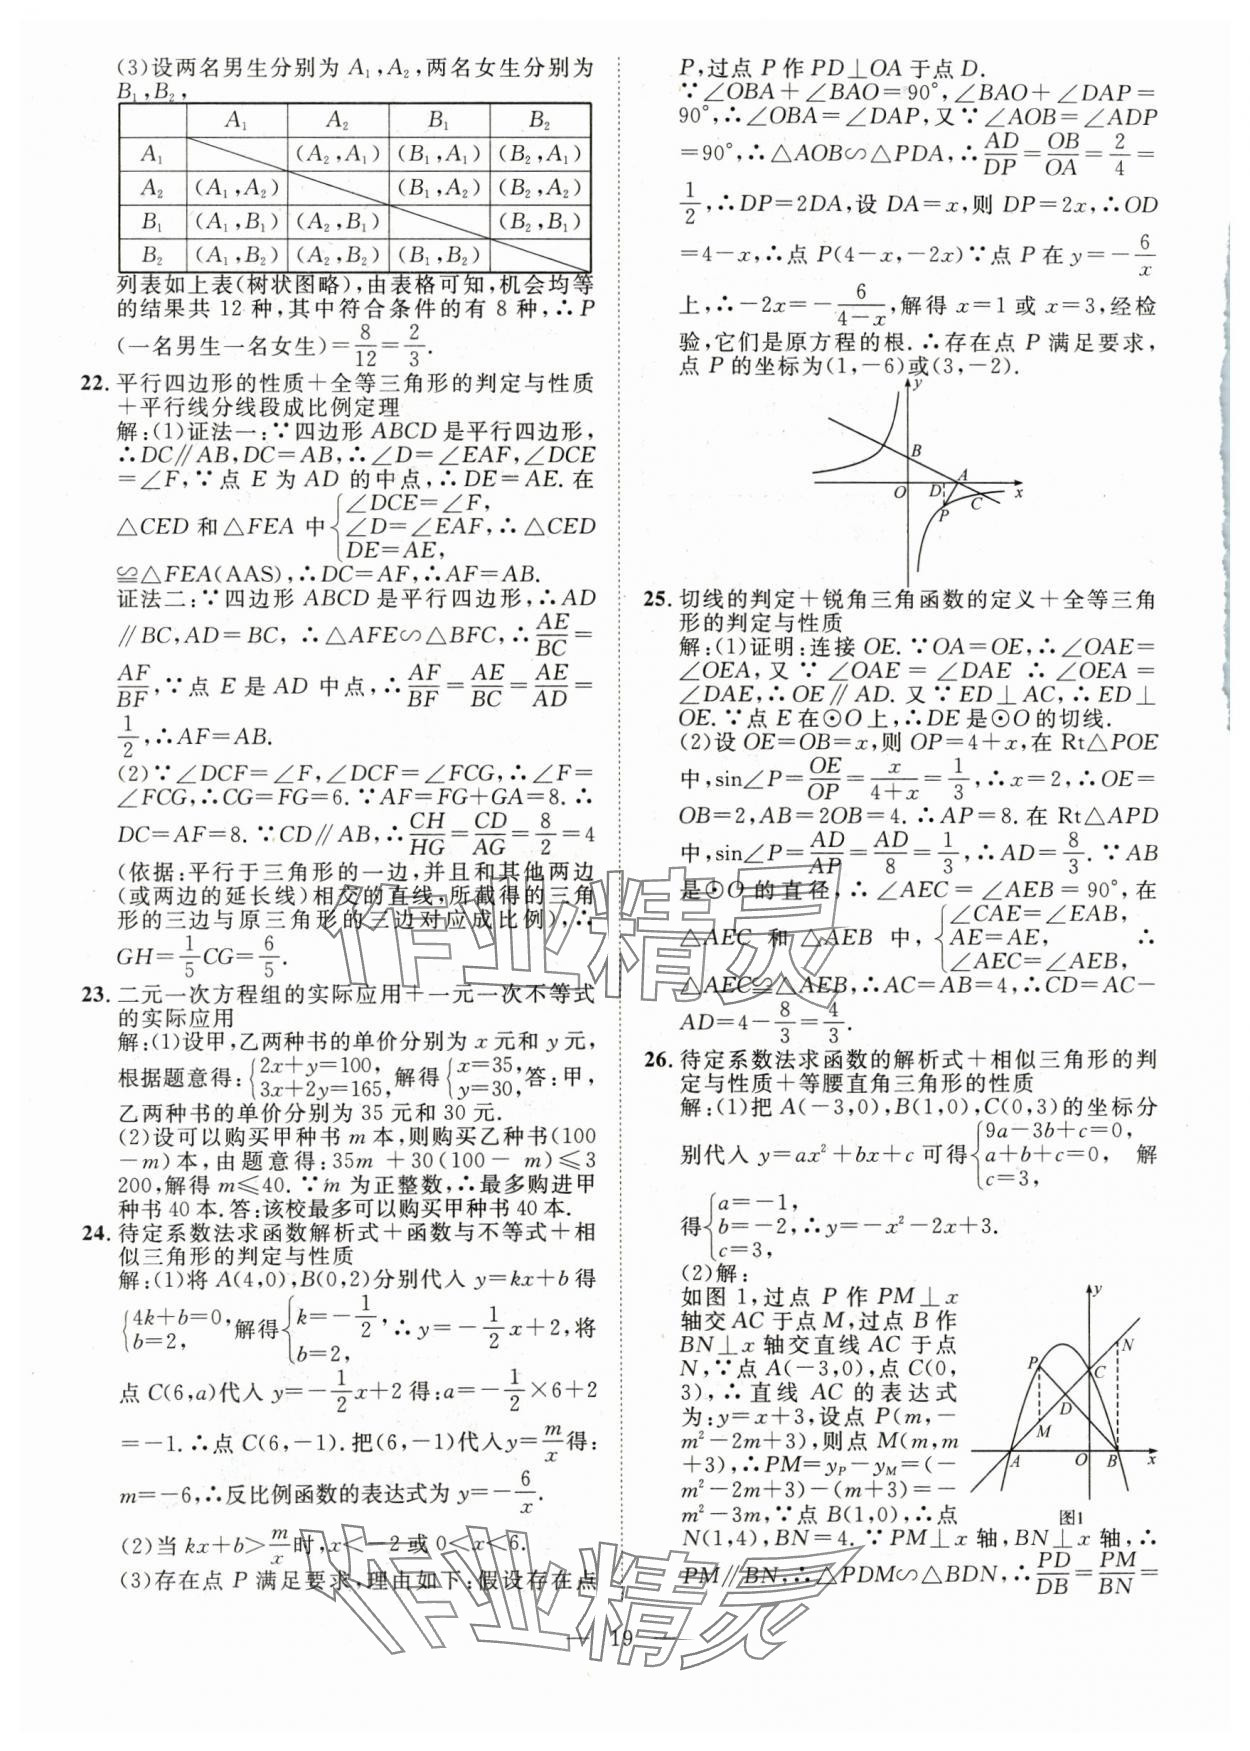 (3)设两名男生分别为 A₁,A₂,两名女生分别为
B₁,B₂,
A₁ A₂ B₁ B₂
A₁ (A₂,A₁) (B₁,A₁) (B₂,A₁)
A₂ (A₁,A₂) (B₁,A₂) (B₂,A₂)
B₁ (A₁,B₁) (A₂,B₁) (B₂,B₁)
B₂ (A₁,B₂) (A₂,B₂) (B₁,B₂)
列表如上表(树状图略),由表格可知,机会均等
的结果共 12 种,其中符合条件的有 8 种,∴P
(一名男生一名女生)=8/12=2/3.
22. 平行四边形的性质+全等三角形的判定与性质
+平行线分线段成比例定理
解:(1)证法一:∵四边形 ABCD 是平行四边形,
∴DC∥AB,DC=AB,∴∠D=∠EAF,∠DCE
=∠F,∵点 E 为 AD 的中点,∴DE=AE.在
△CED 和△FEA 中{∠DCE=∠F, ∠D=∠EAF, DE=AE,∴△CED
≌△FEA(AAS),∴DC=AF,∴AF=AB.
证法二:∵四边形 ABCD 是平行四边形,∴AD
∥BC,AD=BC, ∴△AFE∽△BFC,∴AE/BC=
AF/BF,∵点 E 是 AD 中点,∴AF/BF=AE/BC=AE/AD=
1/2,∴AF=AB.
(2)∵∠DCF=∠F,∠DCF=∠FCG,∴∠F=
∠FCG,∴CG=FG=6.∵AF=FG+GA=8.∴
DC=AF=8.∵CD∥AB,∴CH/HG=CD/AG=8/2=4
(依据:平行于三角形的一边,并且和其他两边
(或两边的延长线)相交的直线,所截得的三角
形的三边与原三角形的三边对应成比例),∴
GH=1/5CG=6/5.
23. 二元一次方程组的实际应用+一元一次不等式
的实际应用
解:(1)设甲,乙两种书的单价分别为 x 元和 y 元,
根据题意得:{2x+y=100, 3x+2y=165,解得{x=35, y=30,答:甲,
乙两种书的单价分别为 35 元和 30 元.
(2)设可以购买甲种书 m 本,则购买乙种书(100
-m)本,由题意得:35m+30(100-m)≤3
200,解得 m≤40.∵m 为正整数,∴最多购进甲
种书 40 本.答:该校最多可以购买甲种书 40 本.
24. 待定系数法求函数解析式+函数与不等式+相
似三角形的判定与性质
解:(1)将 A(4,0),B(0,2)分别代入 y=kx+b 得
{4k+b=0, b=2,解得{k=-1/2, b=2,∴y=-1/2x+2,将
点 C(6,a)代入 y=-1/2x+2 得:a=-1/2×6+2
=-1.∴点 C(6,-1).把(6,-1)代入y=m/x得:
m=-6,∴反比例函数的表达式为 y=-6/x.
(2)当 kx+b>m/x时,x<-2 或 0<x<6.
(3)存在点 P 满足要求,理由如下:假设存在点
P,过点 P 作 PD⊥OA 于点 D.
∵∠OBA+∠BAO=90°,∠BAO+∠DAP=
90°,∴∠OBA=∠DAP,又∵∠AOB=∠ADP
=90°,∴△AOB∽△PDA,∴AD/DP=OB/OA=2/4=
1/2,∴DP=2DA,设 DA=x,则 DP=2x,∴OD
=4-x,∴点 P(4-x,-2x)∵点 P 在 y=-6/x
上,∴-2x=-6/(4-x),解得 x=1 或 x=3,经检
验,它们是原方程的根.∴存在点 P 满足要求,
点 P 的坐标为(1,-6)或(3,-2).
y
B
A
O D x
P C
25. 切线的判定+锐角三角函数的定义+全等三角
形的判定与性质
解:(1)证明:连接 OE.∵OA=OE,∴∠OAE=
∠OEA,又∵∠OAE=∠DAE ∴∠OEA=
∠DAE,∴OE∥AD.又∵ED⊥AC,∴ED⊥
OE.∵点 E 在⊙O 上,∴DE 是⊙O 的切线.
(2)设 OE=OB=x,则 OP=4+x,在 Rt△POE
中,sin∠P=OE/OP=x/(4+x)=1/3,∴x=2,∴OE=
OB=2,AB=2OB=4.∴AP=8.在 Rt△APD
中,sin∠P=AD/AP=AD/8=1/3,∴AD=8/3.∵AB
是⊙O 的直径,∴∠AEC=∠AEB=90°,在
△AEC 和△AEB 中,{∠CAE=∠EAB, AE=AE, ∠AEC=∠AEB, ∴
△AEC≌△AEB,∴AC=AB=4,∴CD=AC-
AD=4-8/3=4/3.
26. 待定系数法求函数的解析式+相似三角形的判
定与性质+等腰直角三角形的性质
解:(1)把 A(-3,0),B(1,0),C(0,3)的坐标分
别代入 y=ax²+bx+c 可得{9a-3b+c=0, a+b+c=0, c=3, 解
得{a=-1, b=-2, c=3,∴y=-x²-2x+3.
(2)解:
如图 1,过点 P 作 PM⊥x
轴交 AC 于点 M,过点 B 作
BN⊥x 轴交直线 AC 于点
N,∵点 A(-3,0),点 C(0,
3),∴直线 AC 的表达式
为:y=x+3,设点 P(m,-
m²-2m+3),则点 M(m,m
+3),∴PM=y_P-y_M=(-
m²-2m+3)-(m+3)=-
m²-3m,∵点 B(1,0),∴点
N(1,4),BN=4.∵PM⊥x 轴,BN⊥x 轴,∴
PM∥BN,∴△PDM∽△BDN,∴PD/DB=PM/BN=
y
N
P C
D
M
A O B x
图1
作业精灵
作业精灵
— 19 —